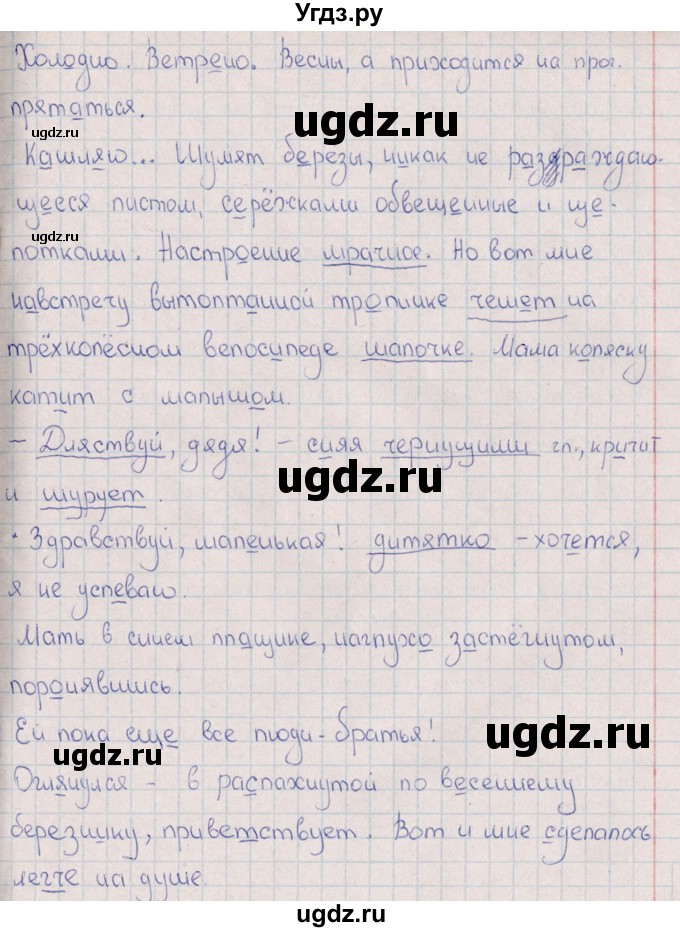 Угдз.ру
Холодно. Ветрено. Весны, а приходится на прог.
прятаться.
Кашляю... Шумят березы, никак не раздраждаю-
щееся листом, серёжками обвещенные и ще-
потками. Настроение мрачное. Но вот мне
навстречу вытоптанной тропинке чешет на
трёхколёсном велосипеде шапочке. Мама коляску
катит с малышом.
- Дляствуй, дядя! - сияя чернущими гл., кричит
и шурует.
- Здравствуй, маленькая! дитятко - хочется,
я не успеваю.
Мать в синем плащике, наглухо застёгнутом,
поронявшись.
Ей пока еще все люди - братья!
Оглянулся - в распахнутой по весеннему
березинку, приветствует. Вот и мне сделалось
легче на душе.
ugdz.ru
ugdz.ru
ugdz.ru
ugdz.ru
ugdz.ru
ugdz.ru
ugdz.ru
ugdz.ru
ugdz.ru
ugdz.ru